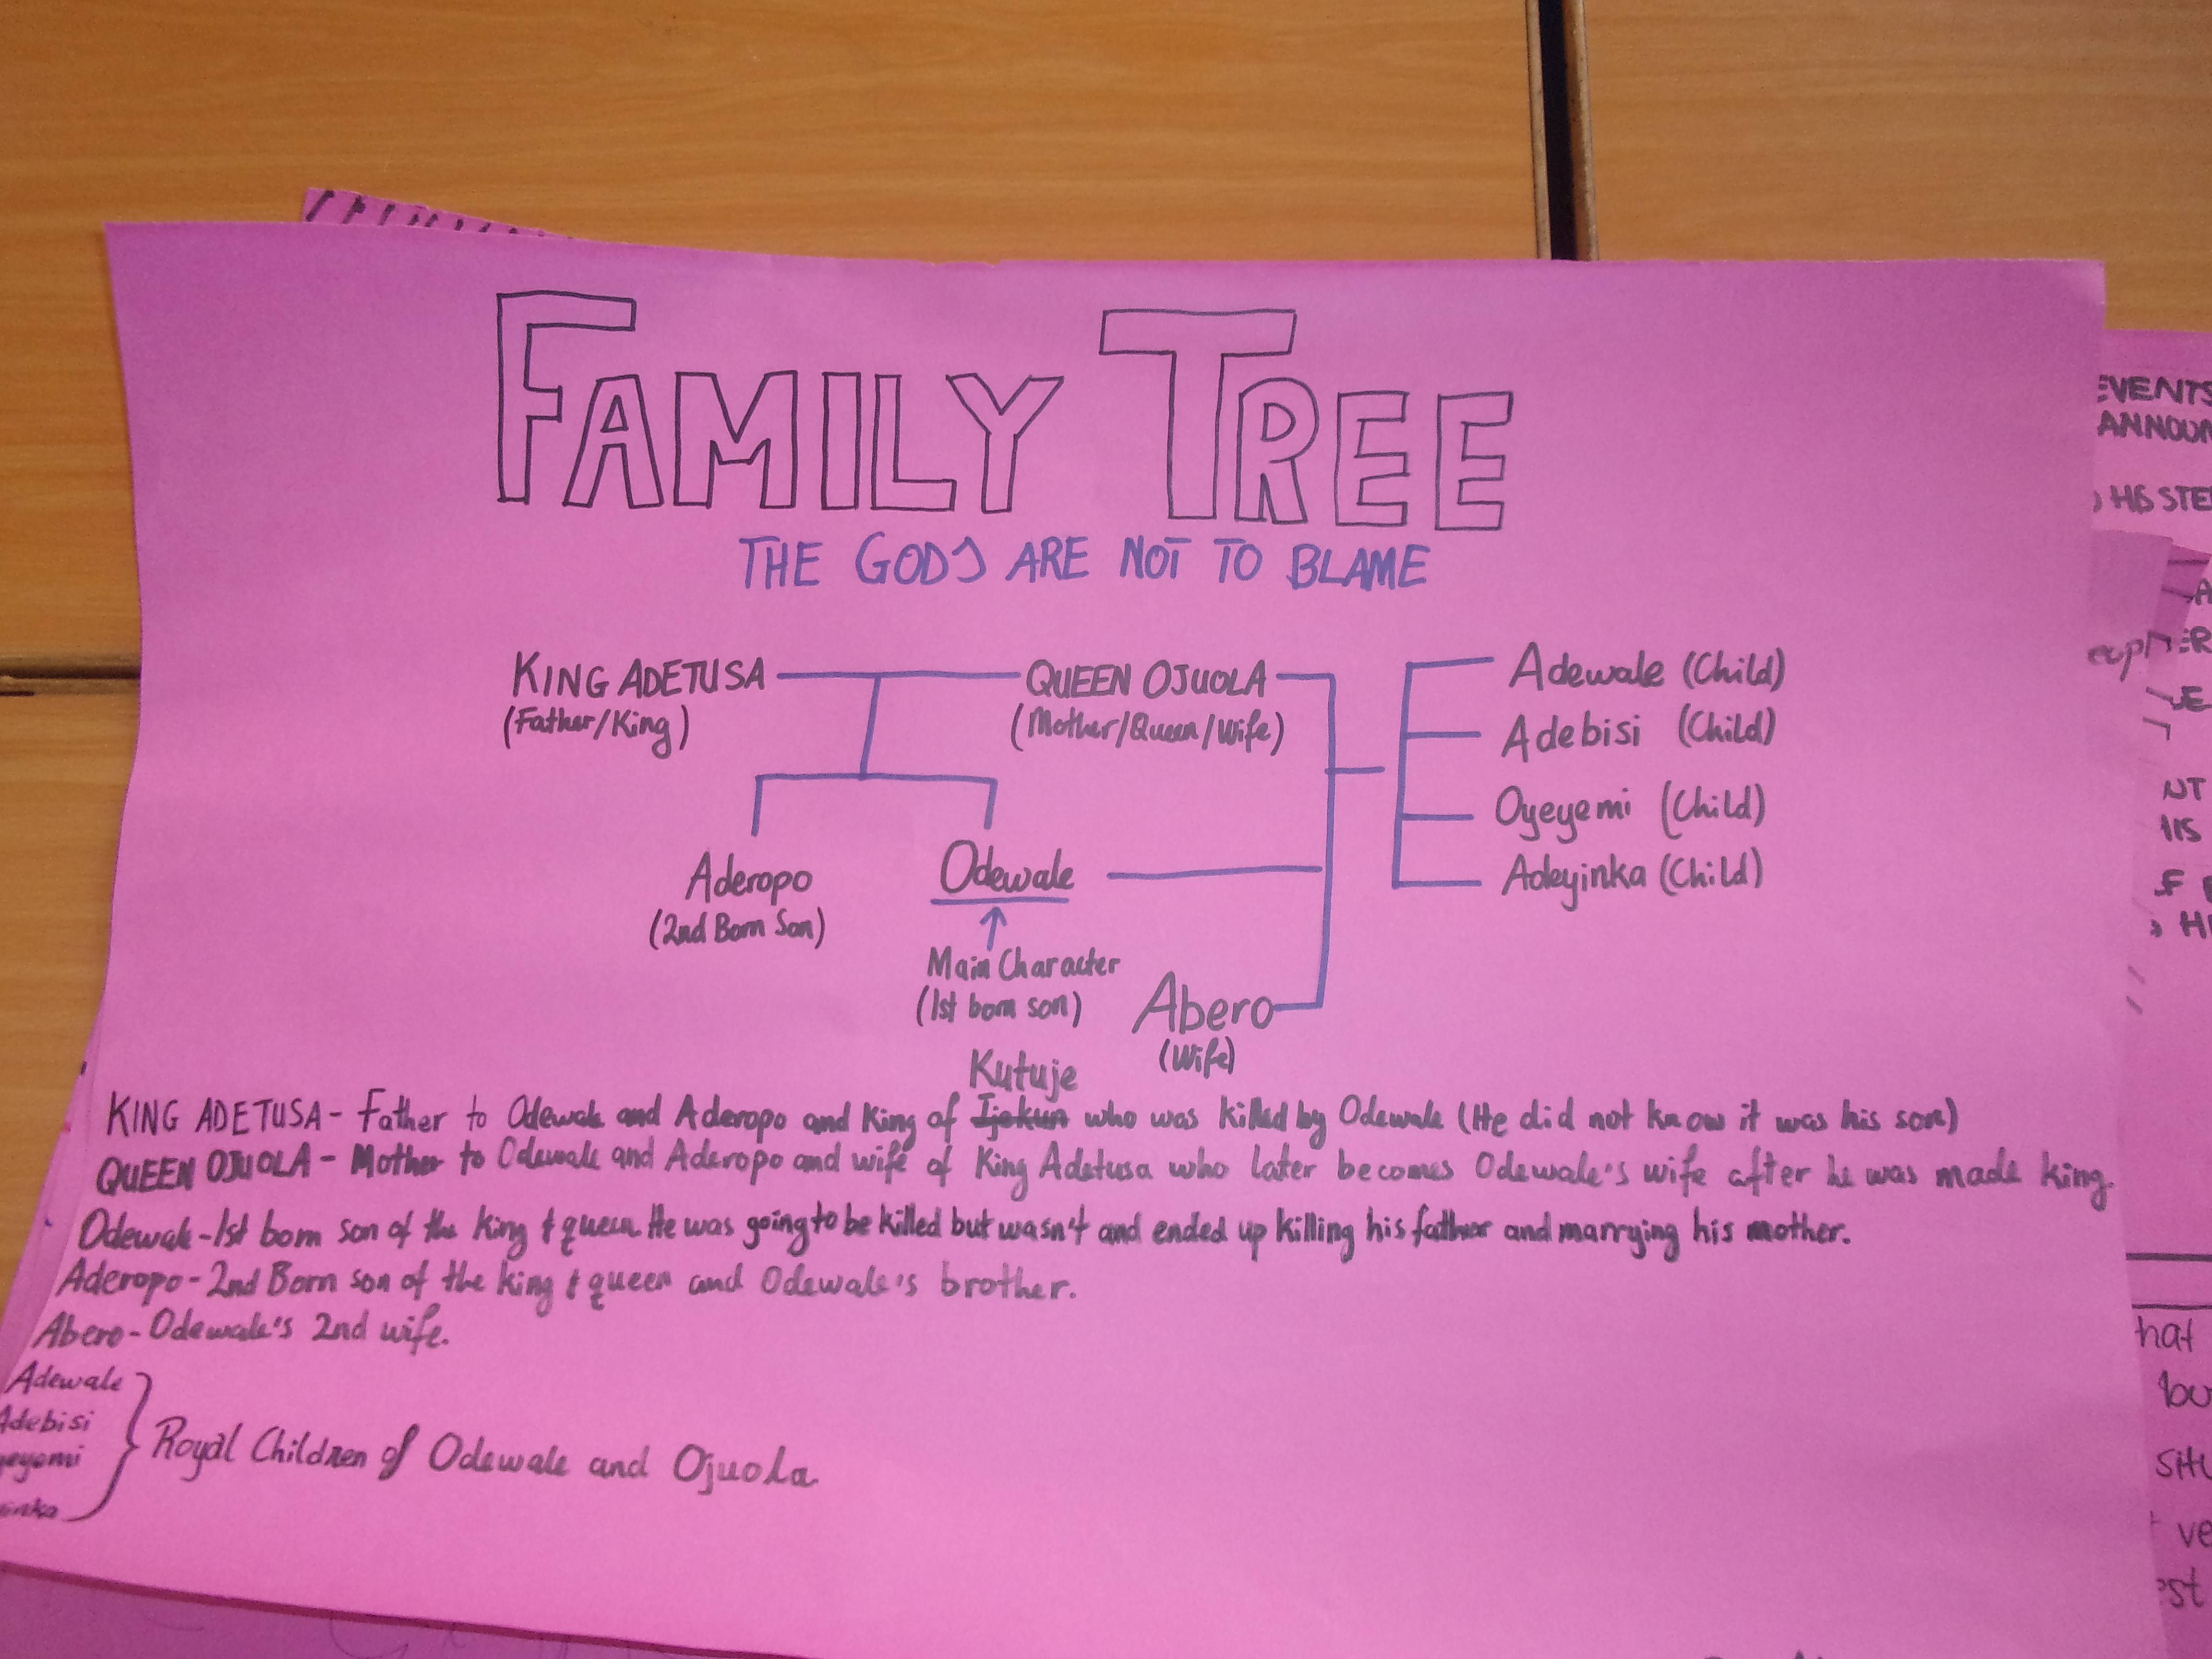 FAMILY TREE
THE GODS ARE NOT TO BLAME
KING ADETUSA
(Father/King)
QUEEN OJUOLA
(Mother/Queen/Wife)
Adewale (Child)
Adebisi (Child)
Oyeyemi (Child)
Adeyinka (Child)
Aderopo
(2nd Born Son)
Odewale
Main Character
(1st born son)
Abero
(Wife)
Kutuje
KING ADETUSA - Father to Odewale and Aderopo and King of Ijekun who was killed by Odewale (He did not know it was his son)
QUEEN OJUOLA - Mother to Odewale and Aderopo and wife of King Adetusa who later becomes Odewale's wife after he was made king.
Odewale - 1st born son of the king & queen. He was going to be killed but wasn't and ended up killing his father and marrying his mother.
Aderopo - 2nd Born son of the king & queen and Odewale's brother.
Abero - Odewale's 2nd wife.
Adewale
Adebisi
yeyemi
inka
Royal Children of Odewale and Ojuola
EVENTS
ANNOUN
HIS STE
NT
HIS
hat
bu
situ
ve
est